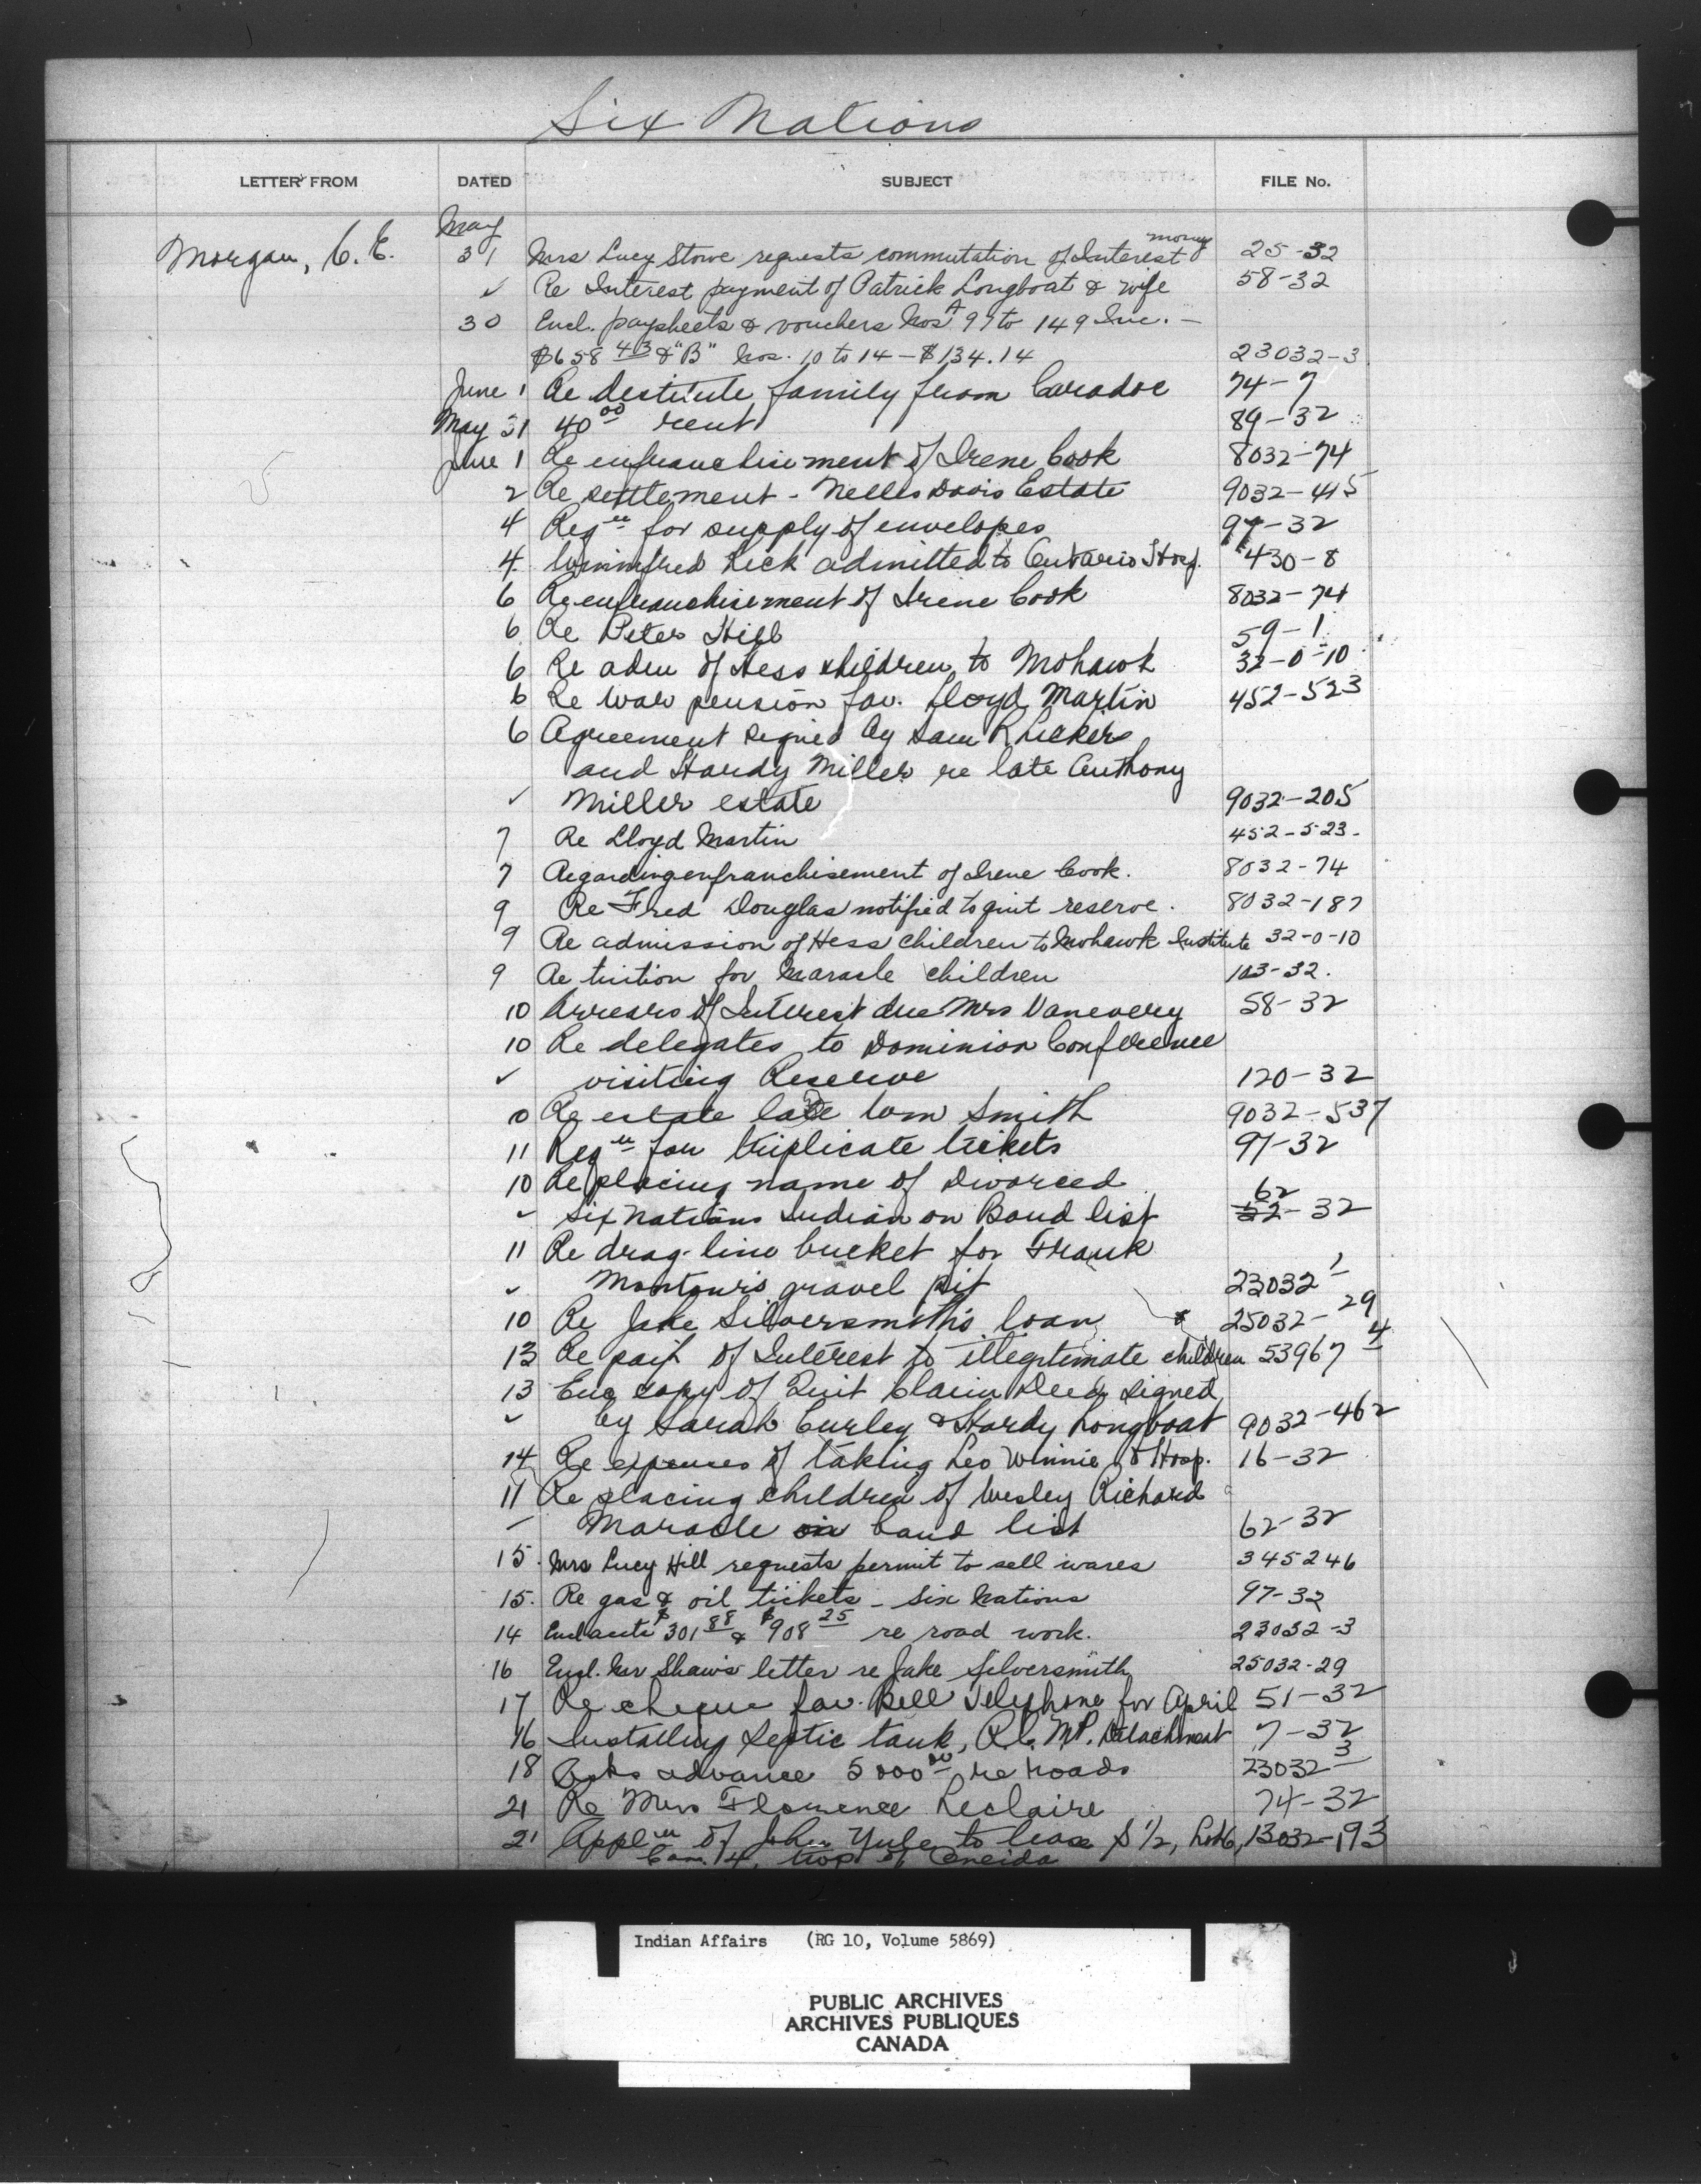 Six Nations
LETTER FROM DATED SUBJECT FILE No.
May
Morgan, C. E. 31 Mrs Lucy Stowe requests commutation of Interest money 25-32
✓ Re Interest payment of Patrick Longboat & wife 58-32
30 Encl. paysheets & vouchers Nos A 97 to 149 Inc. —
$658 43 & "B" Nos. 10 to 14 — $134.14 23032-3
June 1 Re destitute family from Caradoc 74-7
May 31 40 00 rent 89-32
June 1 Re enfranchisement of Irene Cook 8032-74
2 Re settlement - Nelles Davis Estate 9032-415
4 Reqn for supply of envelopes 97-32
4 Winnifred Lick admitted to Ontario Hosp. 430-8
6 Re enfranchisement of Irene Cook 8032-74
6 Re Peter Hill 59-1
6 Re adm of Hess children to Mohawk 32-0-10
6 Re war pension fav. Lloyd Martin 452-523
6 Agreement signed by Sam
and Hardy Miller re late Anthony
✓ Miller estate 9032-205
7 Re Lloyd Martin 452-523-
7 Regarding enfranchisement of Irene Cook. 8032-74
9 Re Fred Douglas notified to quit reserve. 8032-187
9 Re admission of Hess children to Mohawk Institute 32-0-10
9 Re tuition for Maracle children 103-32.
10 Arrears of Interest due Mrs Vanevery 58-32
10 Re delegates to Dominion Conference
✓ visiting Reserve 120-32
0 Re estate late Wm Smith 9032-537
11 Reqn for triplicate tickets 97-32
10 Re placing name of divorced 62
✓ Six Nations Indian on Band list 52-32
11 Re drag-line bucket for Frank
✓ Montour's gravel pit 23032-1
10 Re Jake Silversmith's loan 25032-29
13 Re payt of Interest to illegitimate children 53967-4
13 Enc copy of Quit Claim Deed signed
✓ by Sarah Curley & Hardy Longboat 9032-462
14 Re expenses of taking Leo Winnie to Hosp. 16-32
11 Re placing children of Wesley Richard
Maracle on band list 62-32
15. Mrs Lucy Hill requests permit to sell wares 345246
15. Re gas & oil tickets - Six Nations 97-32
14 Encl accts $301 88 & $908 25 re road work. 23032-3
16 Encl. Mr Shaw's letter re Jake Silversmith 25032-29
17 Re cheque fav. Bell Telephone for April 51-32
16 Installing septic tank, R.C.M.P. Detachment 7-32
18 Asks advance 5000 00 re roads 23032-3
21 Re Mrs Florence Leclaire 74-32
21 Appln of John Yule to lease S 1/2, Lot 6, 13032-193
Con. 14, twp of Oneida
Indian Affairs (RG 10, Volume 5869)
PUBLIC ARCHIVES
ARCHIVES PUBLIQUES
CANADA